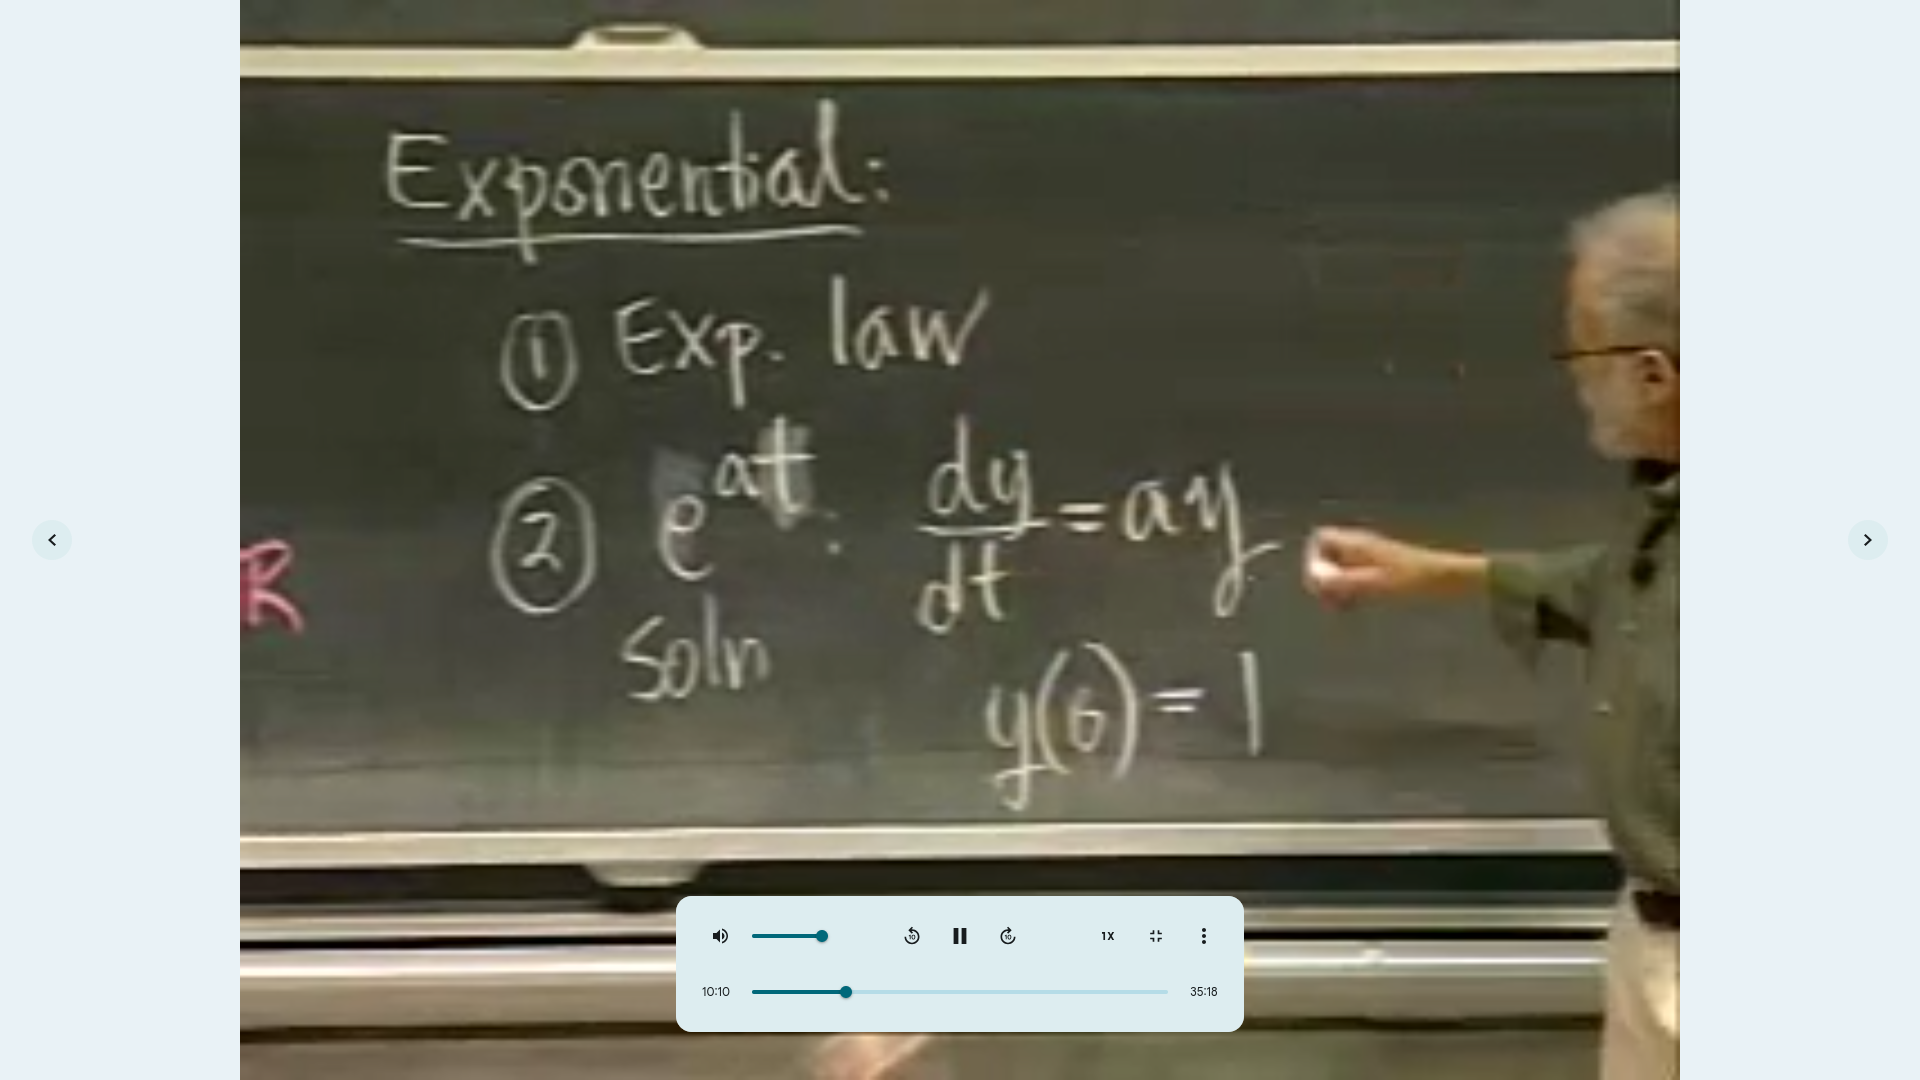 Exponential:
① Exp. law
② e^at : dy/dt = ay
soln
y(0) = 1
R
10 10 1X
10:10 35:18